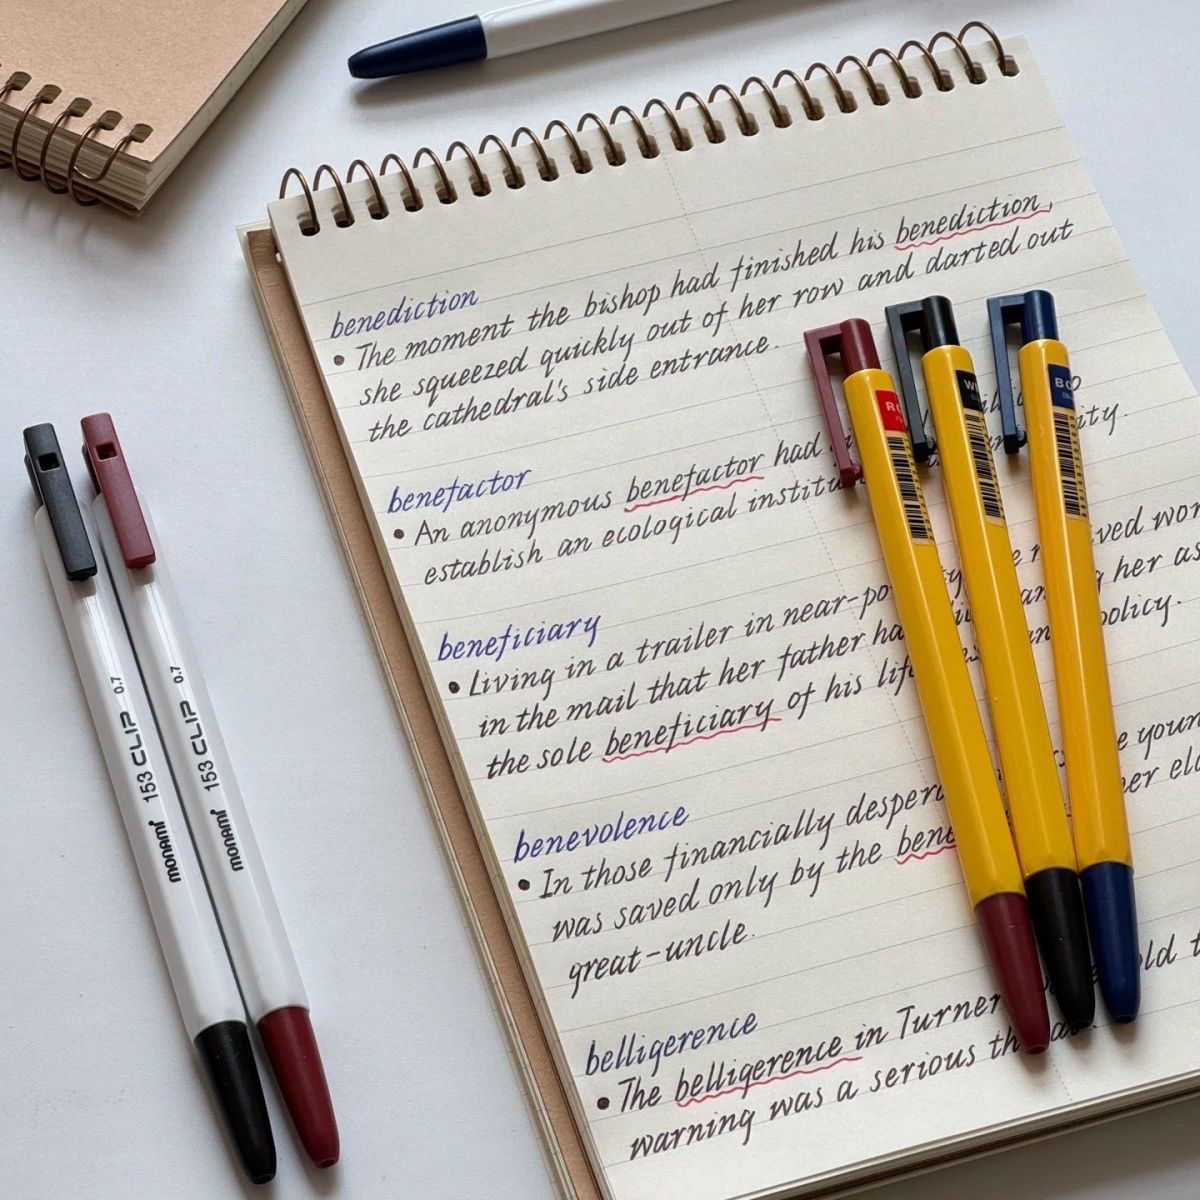 benediction
• The moment the bishop had finished his benediction,
she squeezed quickly out of her row and darted out
the cathedral's side entrance.
benefactor
• An anonymous benefactor had
establish an ecological
beneficiary
• Living in a trailer in
in the mail that her father
her as
the sole beneficiary of his policy.
benevolence
• In those financially
was saved only by the
great-uncle.
belligerence
• The belligerence in Turner
warning was a serious
monami 153 CLIP 0.7
monami 153 CLIP 0.7